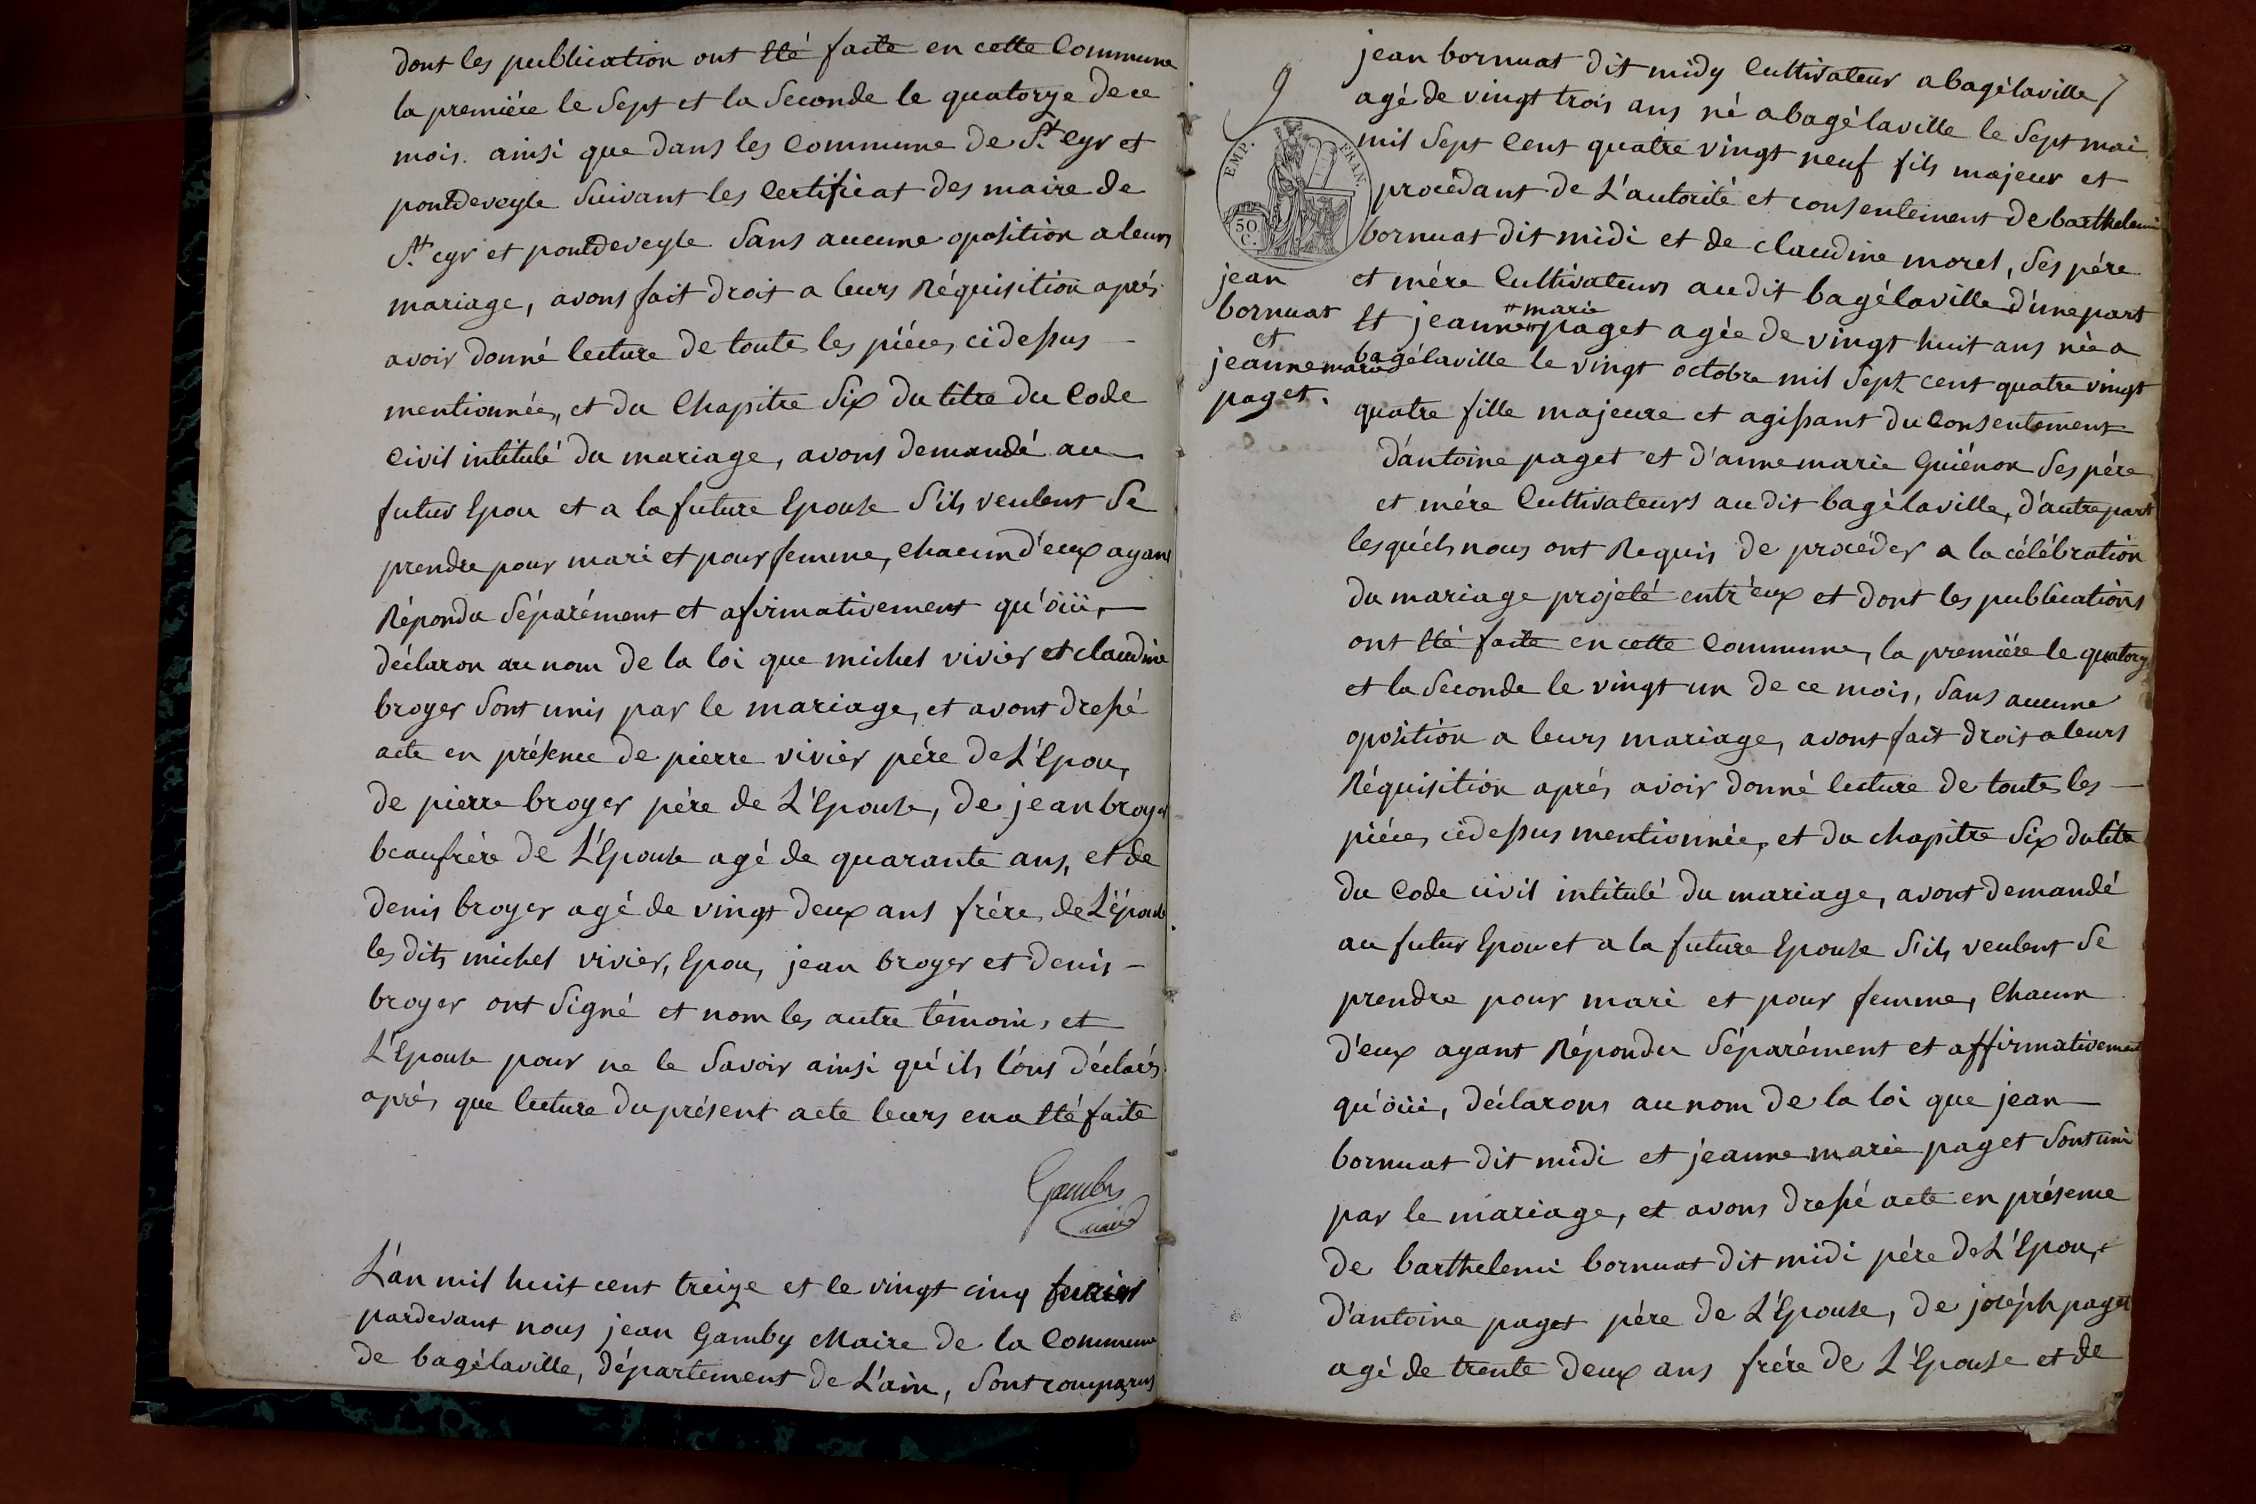 dont les publication ont été faite en cette Commune
la premiére le Sept et la Seconde le quatorze de ce
mois. ainsi que dans les Commune de St. Cyr et
pontdeveyle Suivant les Certificat des maire de
St. cyr et pontdeveyle Sans aucune oposition a leurs
mariage, avons fait droit a leurs Réquisition aprés
avoir donné lecture de toutes les piéces cidessus
mentionnées, et du Chapitre Six du titre du Code
Civil intitulé du mariage, avons demandé au
futur Epou et a la future Epouse S'ils veulent Se
prendre pour mari et pour femme, Chacun d'eux ayant
Répondu Séparément et afirmativement qu'öüi,
déclaron au nom de la loi que michel vivier et claudine
broyer Sont unis par le mariage, et avont dressé
acte en présence de pierre vivier pére de L'Epou,
de pierre broyer pére de L'Epouse, de jean broyer
beaufrére de L'Epouse agé de quarante ans, et de
denis broyer agé de vingt deux ans frére de L'épouse
les dits michel vivier, Epou, jean broyer et denis
broyer ont Signé et nom les autre témoins, et
L'Epouse pour ne le Savoir ainsi qu'ils l'ons déclarés
aprés que lecture du présent acte leurs en a été faite
Gamby
maire
L'an mil huit cent treize et le vingt cinq fevrier
pardevant nous jean Gamby Maire de la Commune
de bagélaville, département de L'ain, Sont comparus
9
7
EMP. FRAN.
50 C.
jean
bornuat
et
jeanne marie
paget.
jean bornuat dit midy Cultivateur a bagélaville
agé de vingt trois ans né a bagélaville le Sept mai
mil Sept Cent quatre vingt neuf fils majeur et
procédant de L'autorité et consentement de barthelemi
bornuat dit midi et de claudine morel, Ses pére
et mére Cultivateurs audit bagélaville d'une part
marie
Et jeanne paget agée de vingt huit ans née a
bagélaville le vingt octobre mil Sept cent quatre vingt
quatre fille majeure et agissant du Consentement
d'antoine paget et d'anne marie Guiénon Ses pére
et mére Cultivateurs audit bagélaville, d'autre part
lesquéls nous ont Requis de procéder a la célébration
du mariage projeté entr'eux et dont les publications
ont été faite en cette Commune, la premiére le quatorze
et la Seconde le vingt un de ce mois, Sans aucune
oposition a leurs mariage, avont fait droit a leurs
Réquisition aprés avoir donné lecture de toutes les
piéces cidessus mentionnées, et du chapitre Six du titre
du Code civil intitulé du mariage, avont demandé
au futur Epou et a la future Epouse S'ils veulent Se
prendre pour mari et pour femme, Chacun
d'eux ayant Répondu Séparément et affirmativement
qu'öüi, déclarons au nom de la loi que jean
bornuat dit midi et jeanne marie paget Sont uni
par le mariage, et avons dressé acte en présence
de barthelemi bornuat dit midi pére de L'Epou,
d'antoine paget pére de L'Epouse, de joséph paget
agé de trente deux ans frére de L'Epouse et de